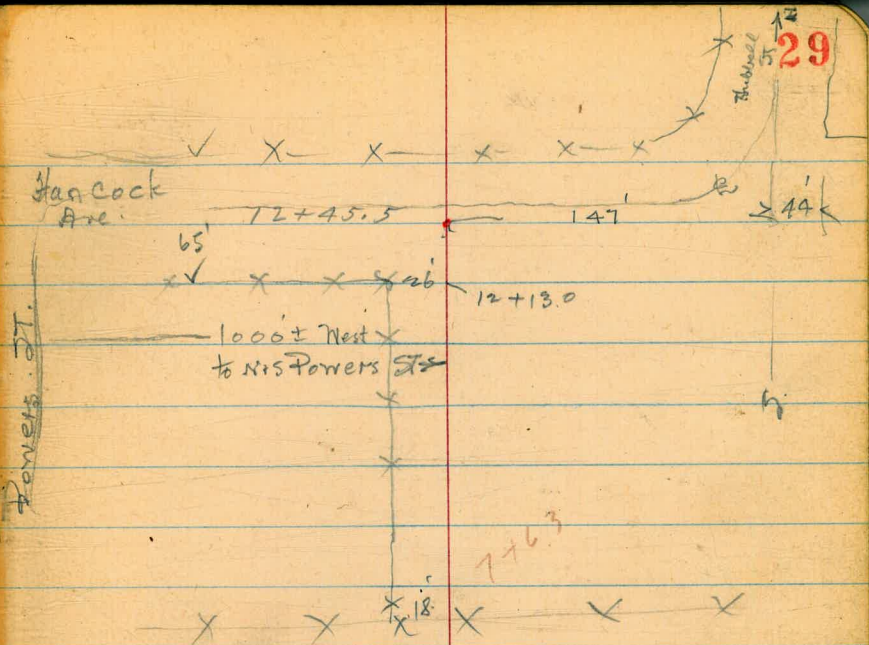 N
29
Hubbell
St
Hancock
Ave.
12+45.5
147'
44'
65'
26'
12+13.0
1000'± West
to N+S Powers St
Powers. ST.
S
7+6.3
18'